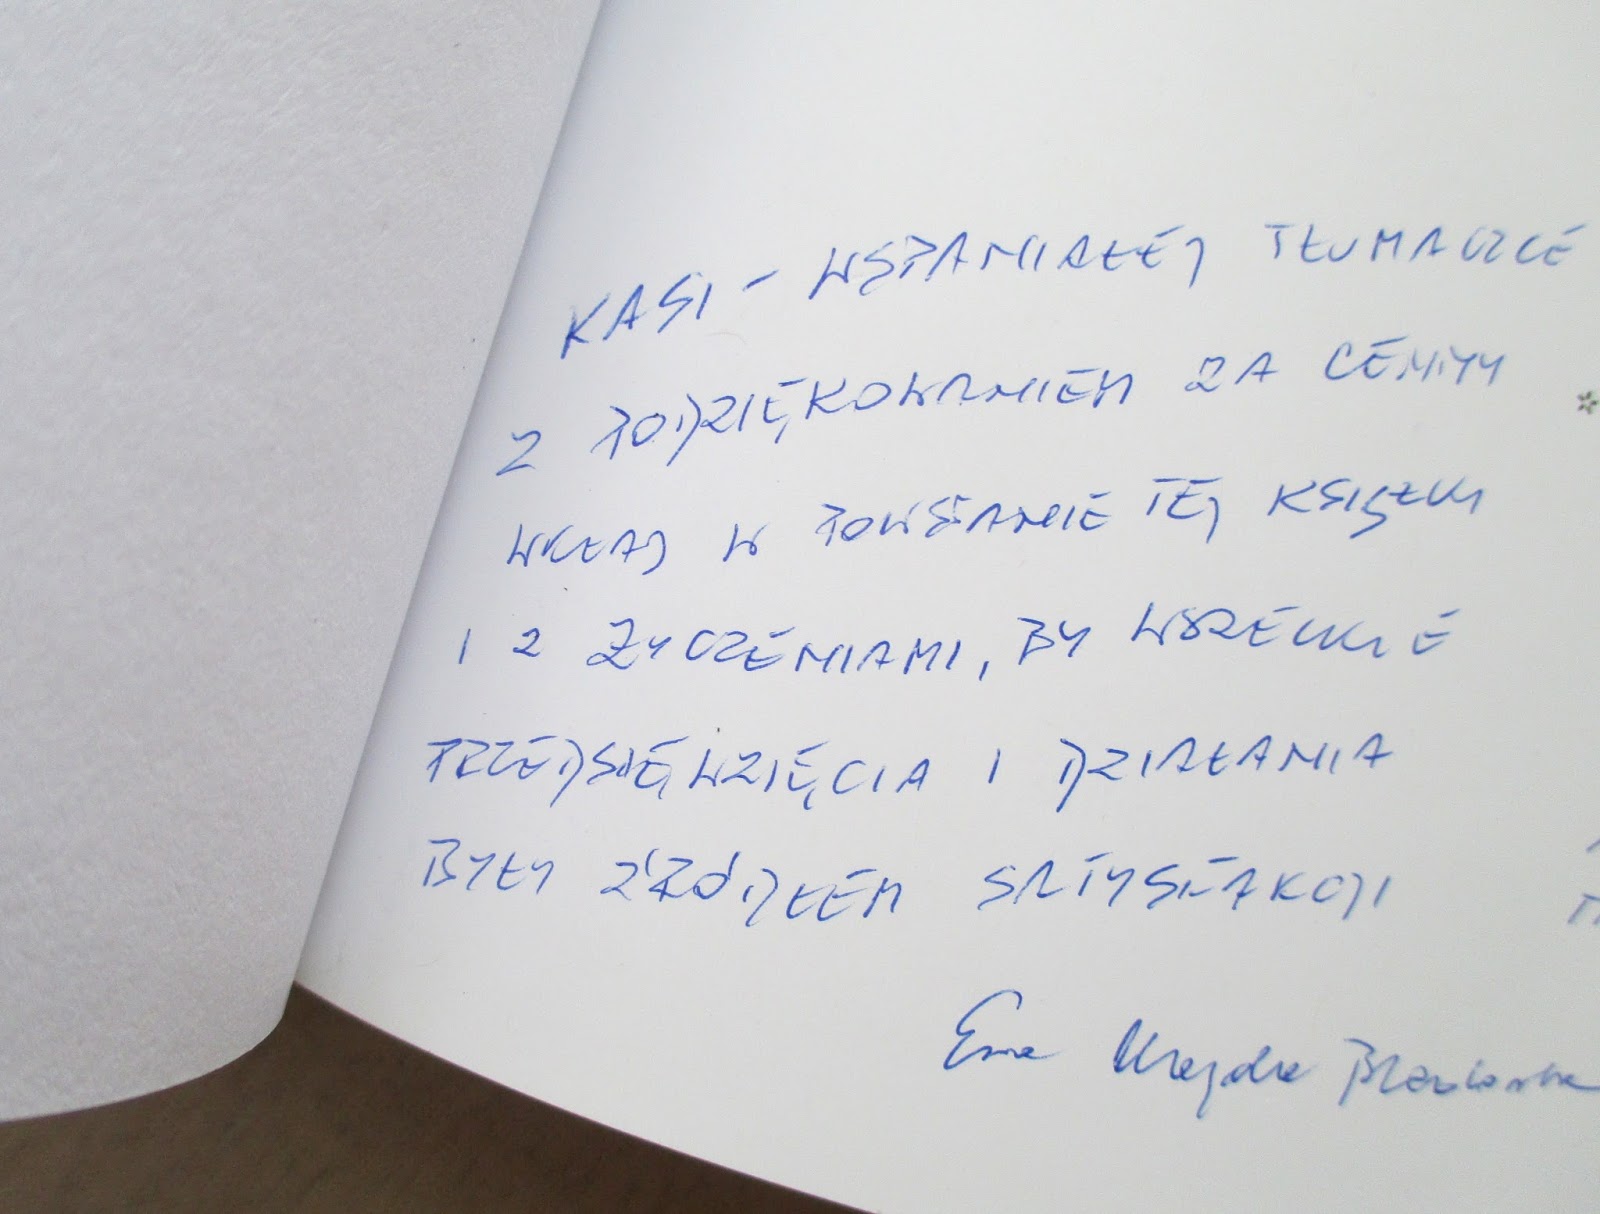 KASI – WSPANIAŁEJ TŁUMACZCE
Z PODZIĘKOWANIEM ZA CENNY
WKŁAD W POWSTANIE TEJ KSIĄŻKI
I Z ŻYCZENIAMI, BY WSZELKIE
PRZEDSIĘWZIĘCIA I DZIAŁANIA
BYŁY ŹRÓDŁEM SATYSFAKCJI
Ewa